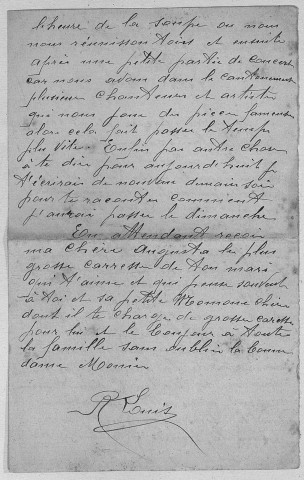 l'heure de la soupe ou nous
nous réunisson tous et ensuite
après une petite partie de concert
car nous avons dans le cantonnement
plusieur chanteurs et artistes
qui nous joue des pieces fameuse
alors cela fait passer le temps
plus vite. Enfin pas autre chose
à te dire pour aujourd'huit je
t'écrirais de nouveau demain soir
pour te raconter comment
j'aurais passer le dimanche
En attendant recoi
ma chère Augusta le plus
grosse carresse de ton mari
qui t'aime et qui pense souvent
à toi et sa petite Momone chérie
dont il te charge de grosse caresse
pour lui et le bonjour à toute
la famille sans oublier la bonne
dame Monier
R Louis